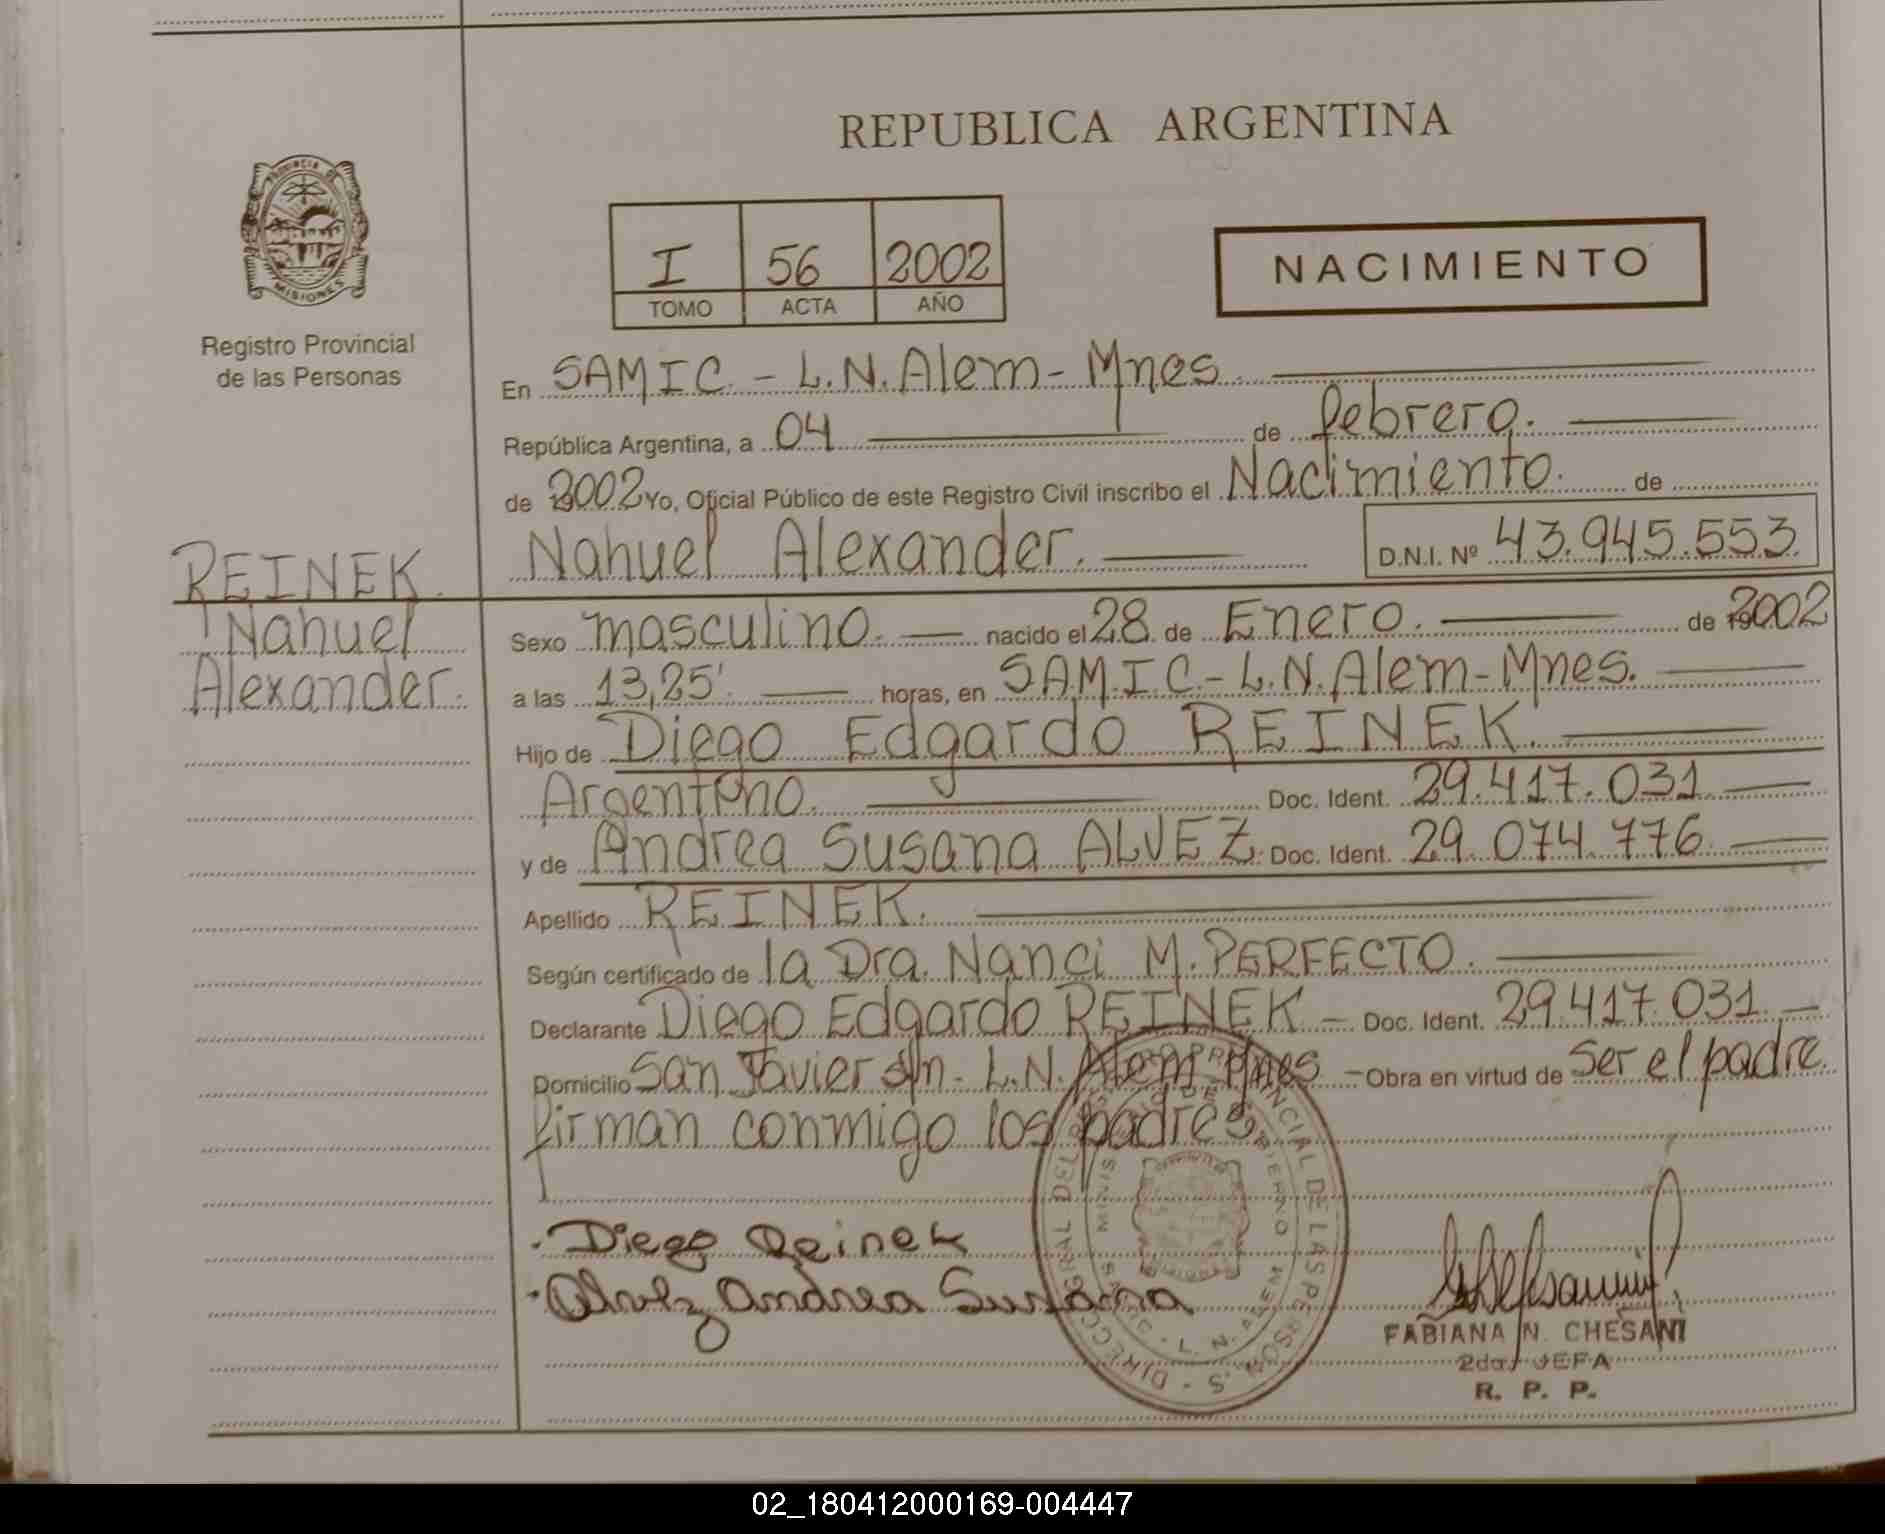 REPUBLICA ARGENTINA
PROVINCIA DE
MISIONES
Registro Provincial
de las Personas
I 56 2002
TOMO ACTA AÑO
NACIMIENTO
En SAMIC. - L.N.Alem - Mnes.
República Argentina, a 04 de febrero.
de 2002 Yo, Oficial Público de este Registro Civil inscribo el Nacimiento. de
Nahuel Alexander. D.N.I. Nº 43.945.553
REINEK.
Nahuel
Alexander.
Sexo masculino. nacido el 28 de Enero. de 2002
a las 13,25'. horas, en SAMIC - L.N.Alem - Mnes.
Hijo de Diego Edgardo REINEK.
Argentino. Doc. Ident. 29.417.031
y de Andrea Susana ALVEZ. Doc. Ident. 29.074.776
Apellido REINEK.
Según certificado de la Dra. Nanci M. PERFECTO.
Declarante Diego Edgardo REINEK - Doc. Ident. 29.417.031 -
Domicilio San Javier s/n - L.N.Alem - Mnes - Obra en virtud de ser el padre.
firman conmigo los padres
Diego Reinek
Alvez Andrea Susana
FABIANA N. CHESANI
2da. JEFA
R. P. P.
02_180412000169-004447